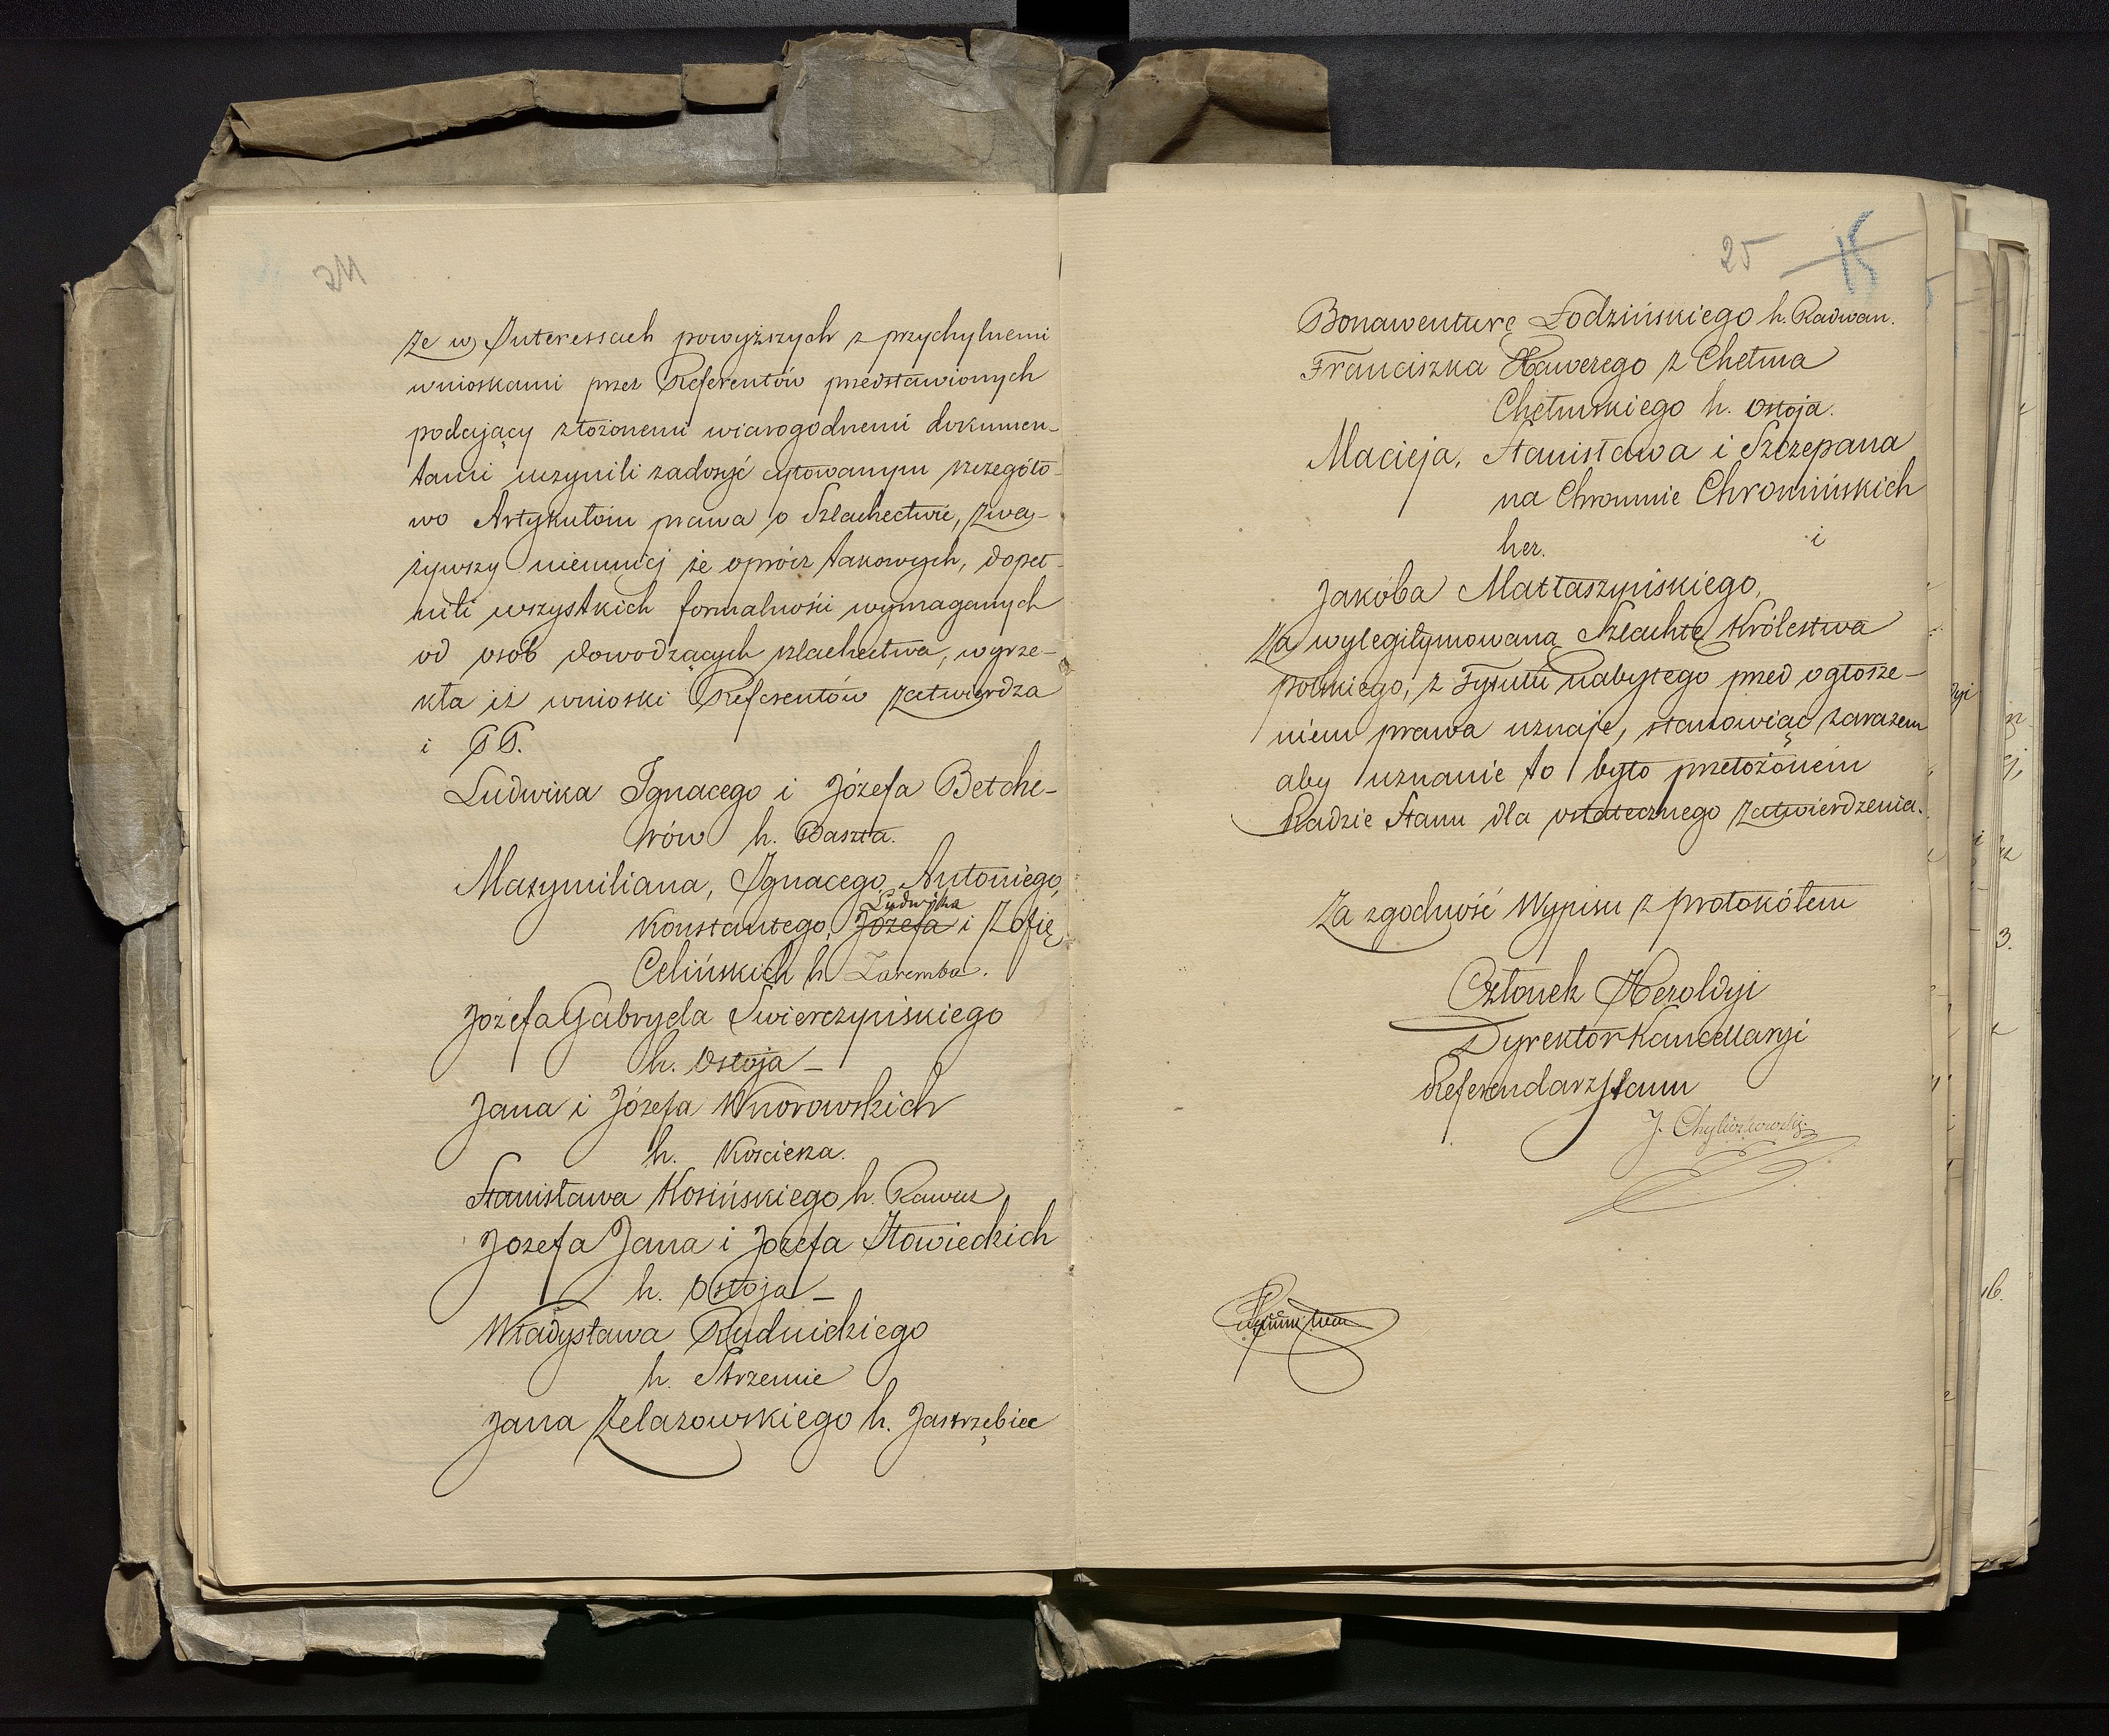 że w Interessach powyższych z przychylnemi
wnioskami przez Referentów przedstawionych
podający złożonemi wiarogodnemi dokumen-
tami uczynili zadosyć cytowanym szczegóło-
wo Artykułom prawa o Szlachectwie, zwa-
żywszy niemniej że oprócz takowych, dopeł-
nili wszystkich formalności wymaganych
od osób dowodzących szlachectwa, wyrze-
kła iż wnioski Referentów zatwierdza
i PP.
Ludwika Ignacego i Józefa Betche-
rów h. Baszta.
Maxymiliana, Ignacego, Antoniego,
Ludwika
Konstantego, Józefa i Zofię
Celińskich h. Zaremba.
Józefa Gabryela Swierczyńskiego
h. Ostoja —
Jana i Józefa Wnorowskich
h. Kościesza.
Stanisława Kosińskiego h. Rawicz
Józefa Jana i Józefa Iłowieckich
h. Ostoja —
Władysława Rudnickiego
h. Strzemie
Jana Żelazowskiego h. Jastrzębiec
25 15
Bonawenturę Łodzińskiego h. Radwan.
Franciszka Xawerego z Chełma
Chełmskiego h. Ostoja.
Macieja, Stanisława i Szczepana
na Chromnie Chromińskich
her. i
Jakóba Małłaszyńskiego,
Za wylegitymowaną Szlachtę Królestwa
Polskiego, z Tytułu nabytego przed ogłosze-
niem prawa uznaje, stanowiąc zarazem
aby uznanie to było przełożonem
Radzie Stanu dla ostatecznego zatwierdzenia.
Za zgodność Wypisu z protokółem
Członek Heroldyi
Dyrektor Kancellaryi
Referendarz Stanu
J. Chyliczkowski